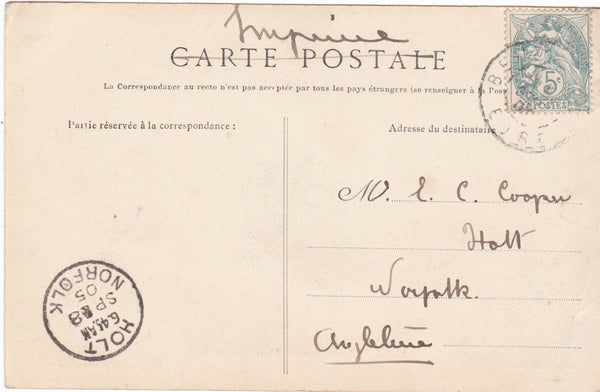 Imprimé
CARTE POSTALE
La Correspondance au recto n'est pas acceptée par tous les pays étrangers (se renseigner à la Pos
Partie réservée à la correspondance :
Adresse du destinataire
5c
POSTES
BE
EURE
M. E. C. Cooper
Holt
Norfolk.
Angleterre
HOLT
6.45 AM
SP 8
05
NORFOLK